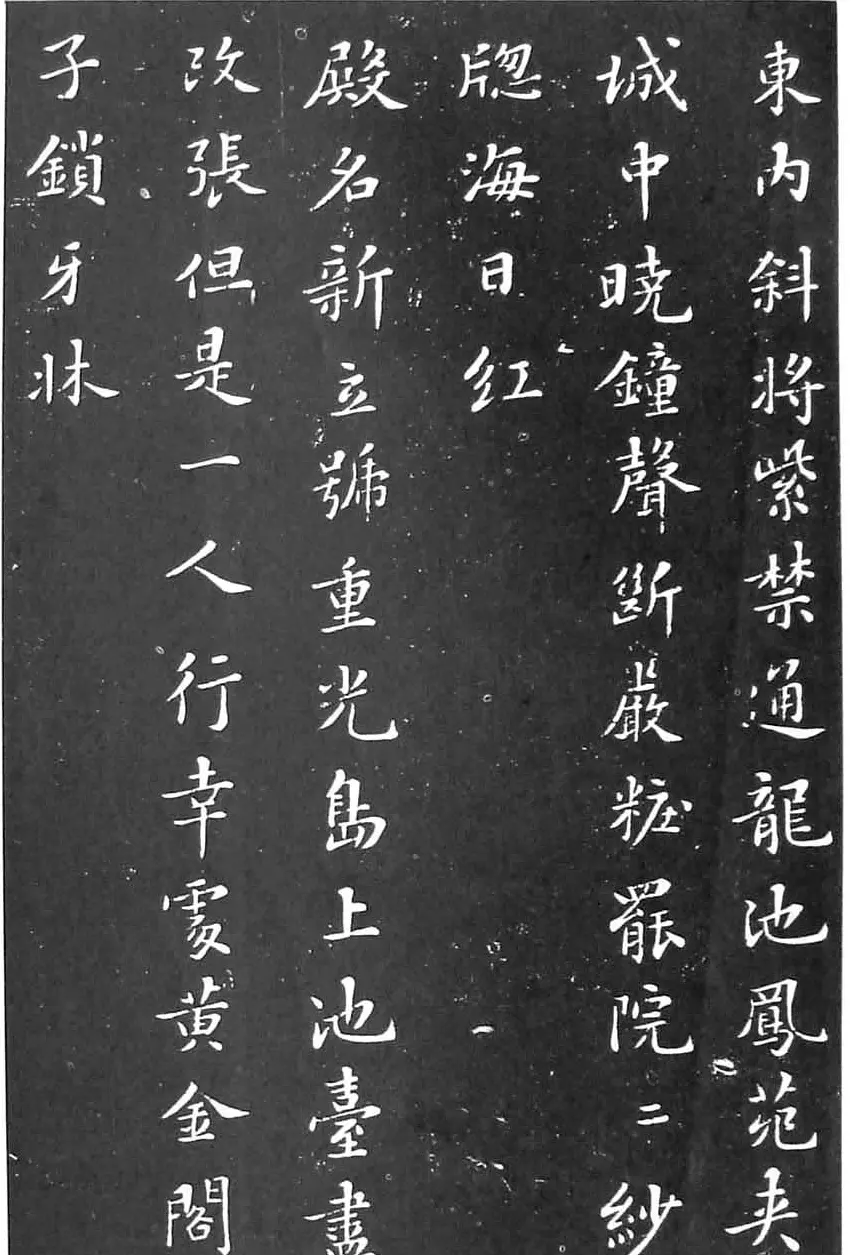 東內斜將紫禁通龍池鳳苑夾
城中曉鐘聲斷嚴粧罷院二紗
牎海日紅
殿名新立號重光島上池臺盡
改張但是一人行幸處黃金閤
子鎖牙牀